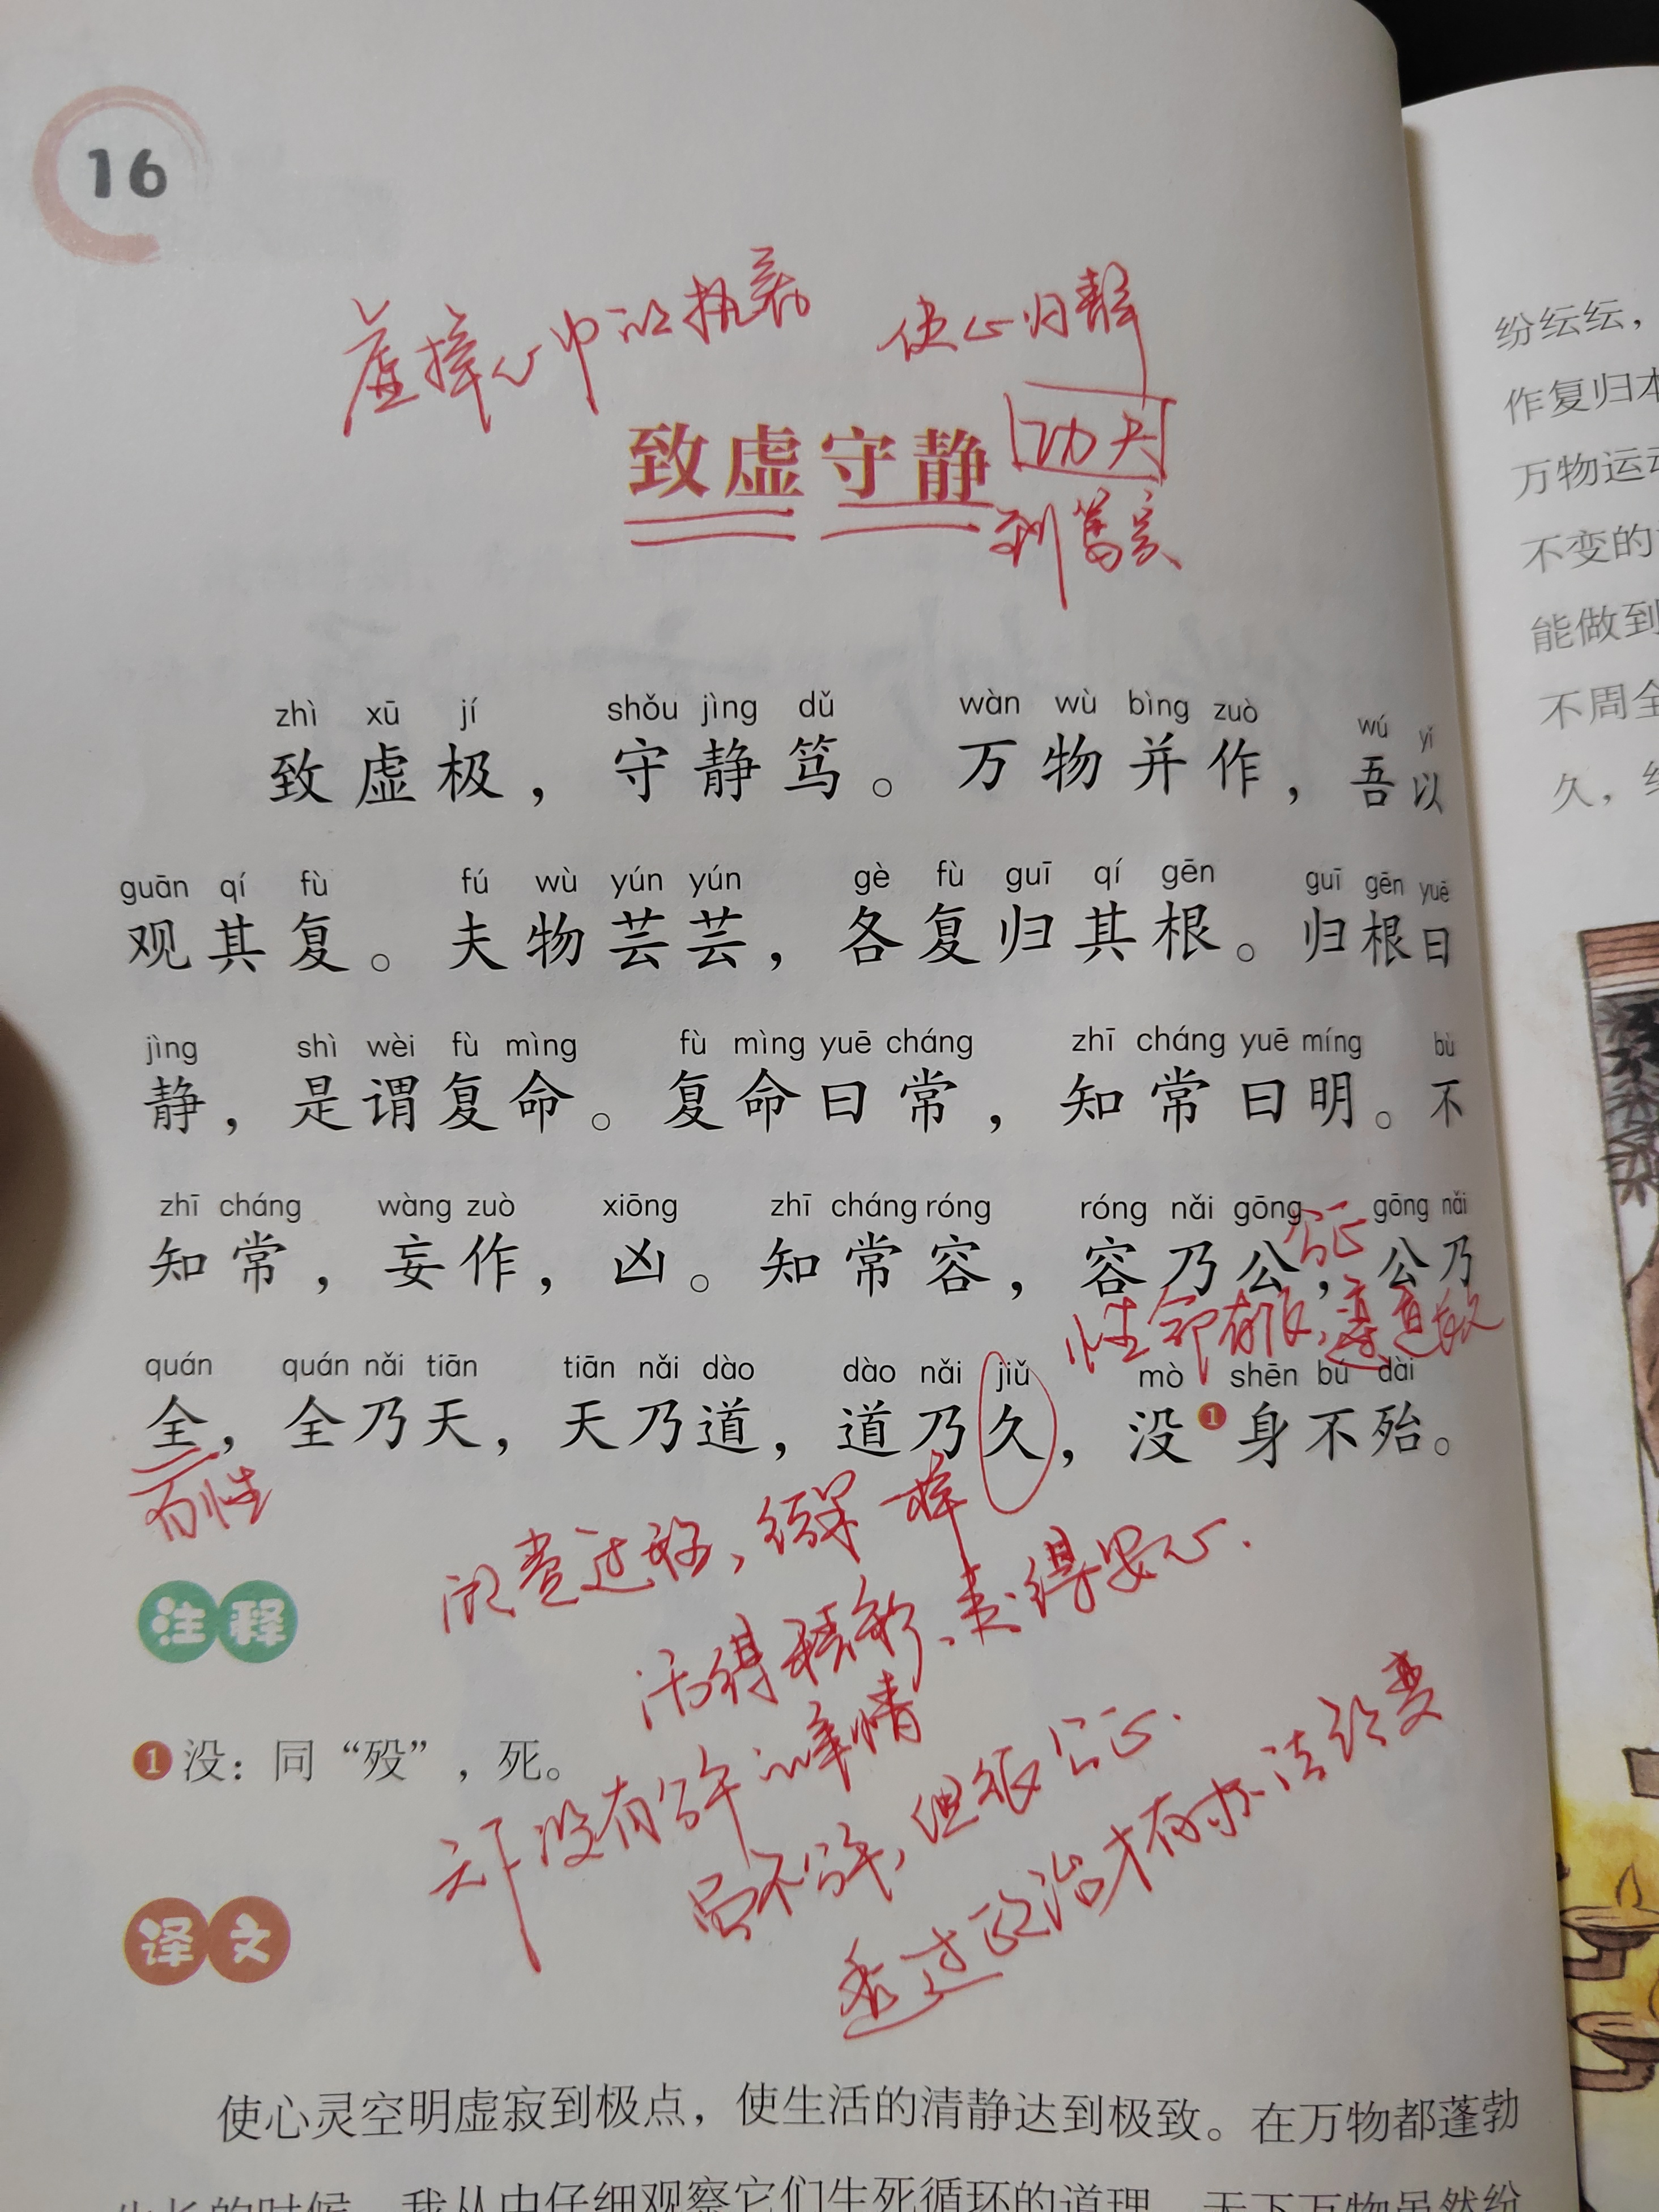 16
虚掉心中的执著 使心归静
致虚守静 功夫
到笃实
zhì xū jí shǒu jìng dǔ wàn wù bìng zuò wú yǐ
致虚极，守静笃。万物并作，吾以
guān qí fù fú wù yún yún gè fù guī qí gēn guī gēn yuē
观其复。夫物芸芸，各复归其根。归根曰
jìng shì wèi fù mìng fù mìng yuē cháng zhī cháng yuē míng bù
静，是谓复命。复命曰常，知常曰明。不
zhī cháng wàng zuò xiōng zhī cháng róng róng nǎi gōng gōng nǎi
知常，妄作，凶。知常容，容乃公，公乃
公正
性命有限，
quán quán nǎi tiān tiān nǎi dào dào nǎi jiǔ mò shēn bú dài
全，全乃天，天乃道，道乃久，没❶身不殆。
百姓
结果一样
活得精彩、走得安心.
注释
❶没：同“殁”，死。
天下没有公平的事情
虽不公平，但很公正.
透过政治才有办法改变
译文
使心灵空明虚寂到极点，使生活的清静达到极致。在万物都蓬勃
生长的时候，我从中仔细观察它们生死循环的道理。天下万物虽然纷
纷纭纭，
作复归本
万物运动
不变的
能做到
不周全
久，